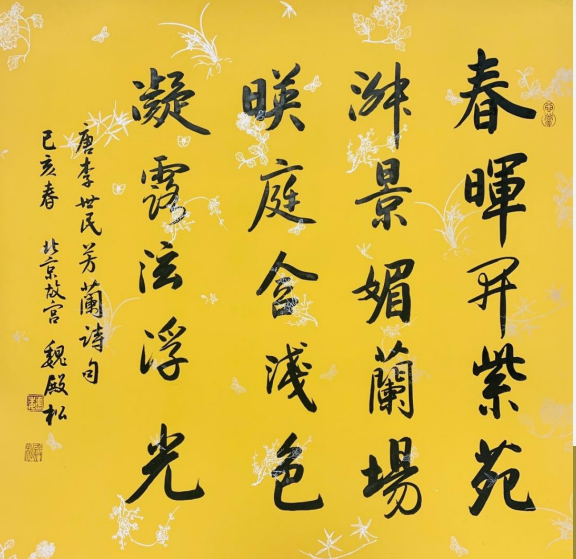 春暉開紫苑
淋景媚蘭場
暎庭含淺色
凝露泫浮光
唐李世民芳蘭詩句
己亥春 北京故宮 魏殿松